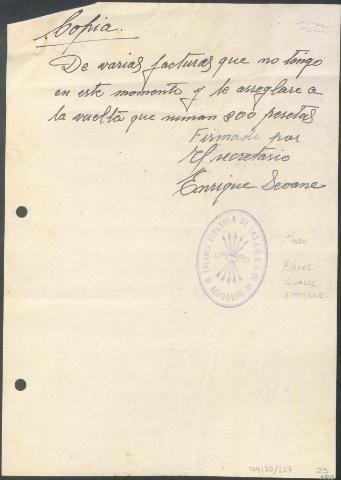 Copia.
De varias facturas que no tengo
en este momento y te arreglare a
la vuelta que suman 200 pesetas
Firmado por
El secretario
Enrique Seoane
FALANGE ESPAÑOLA DE LAS J.O.N.S. DE
Juan